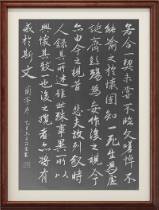 若合一契未嘗不臨文嗟悼不
能喻之於懷固知一死生為虛
誕齊彭殤為妄作後之視今
亦由今之視昔悲夫故列敘時
人錄其所述雖世殊事異所以
興懷其致一也後之覽者亦將有
感於斯文